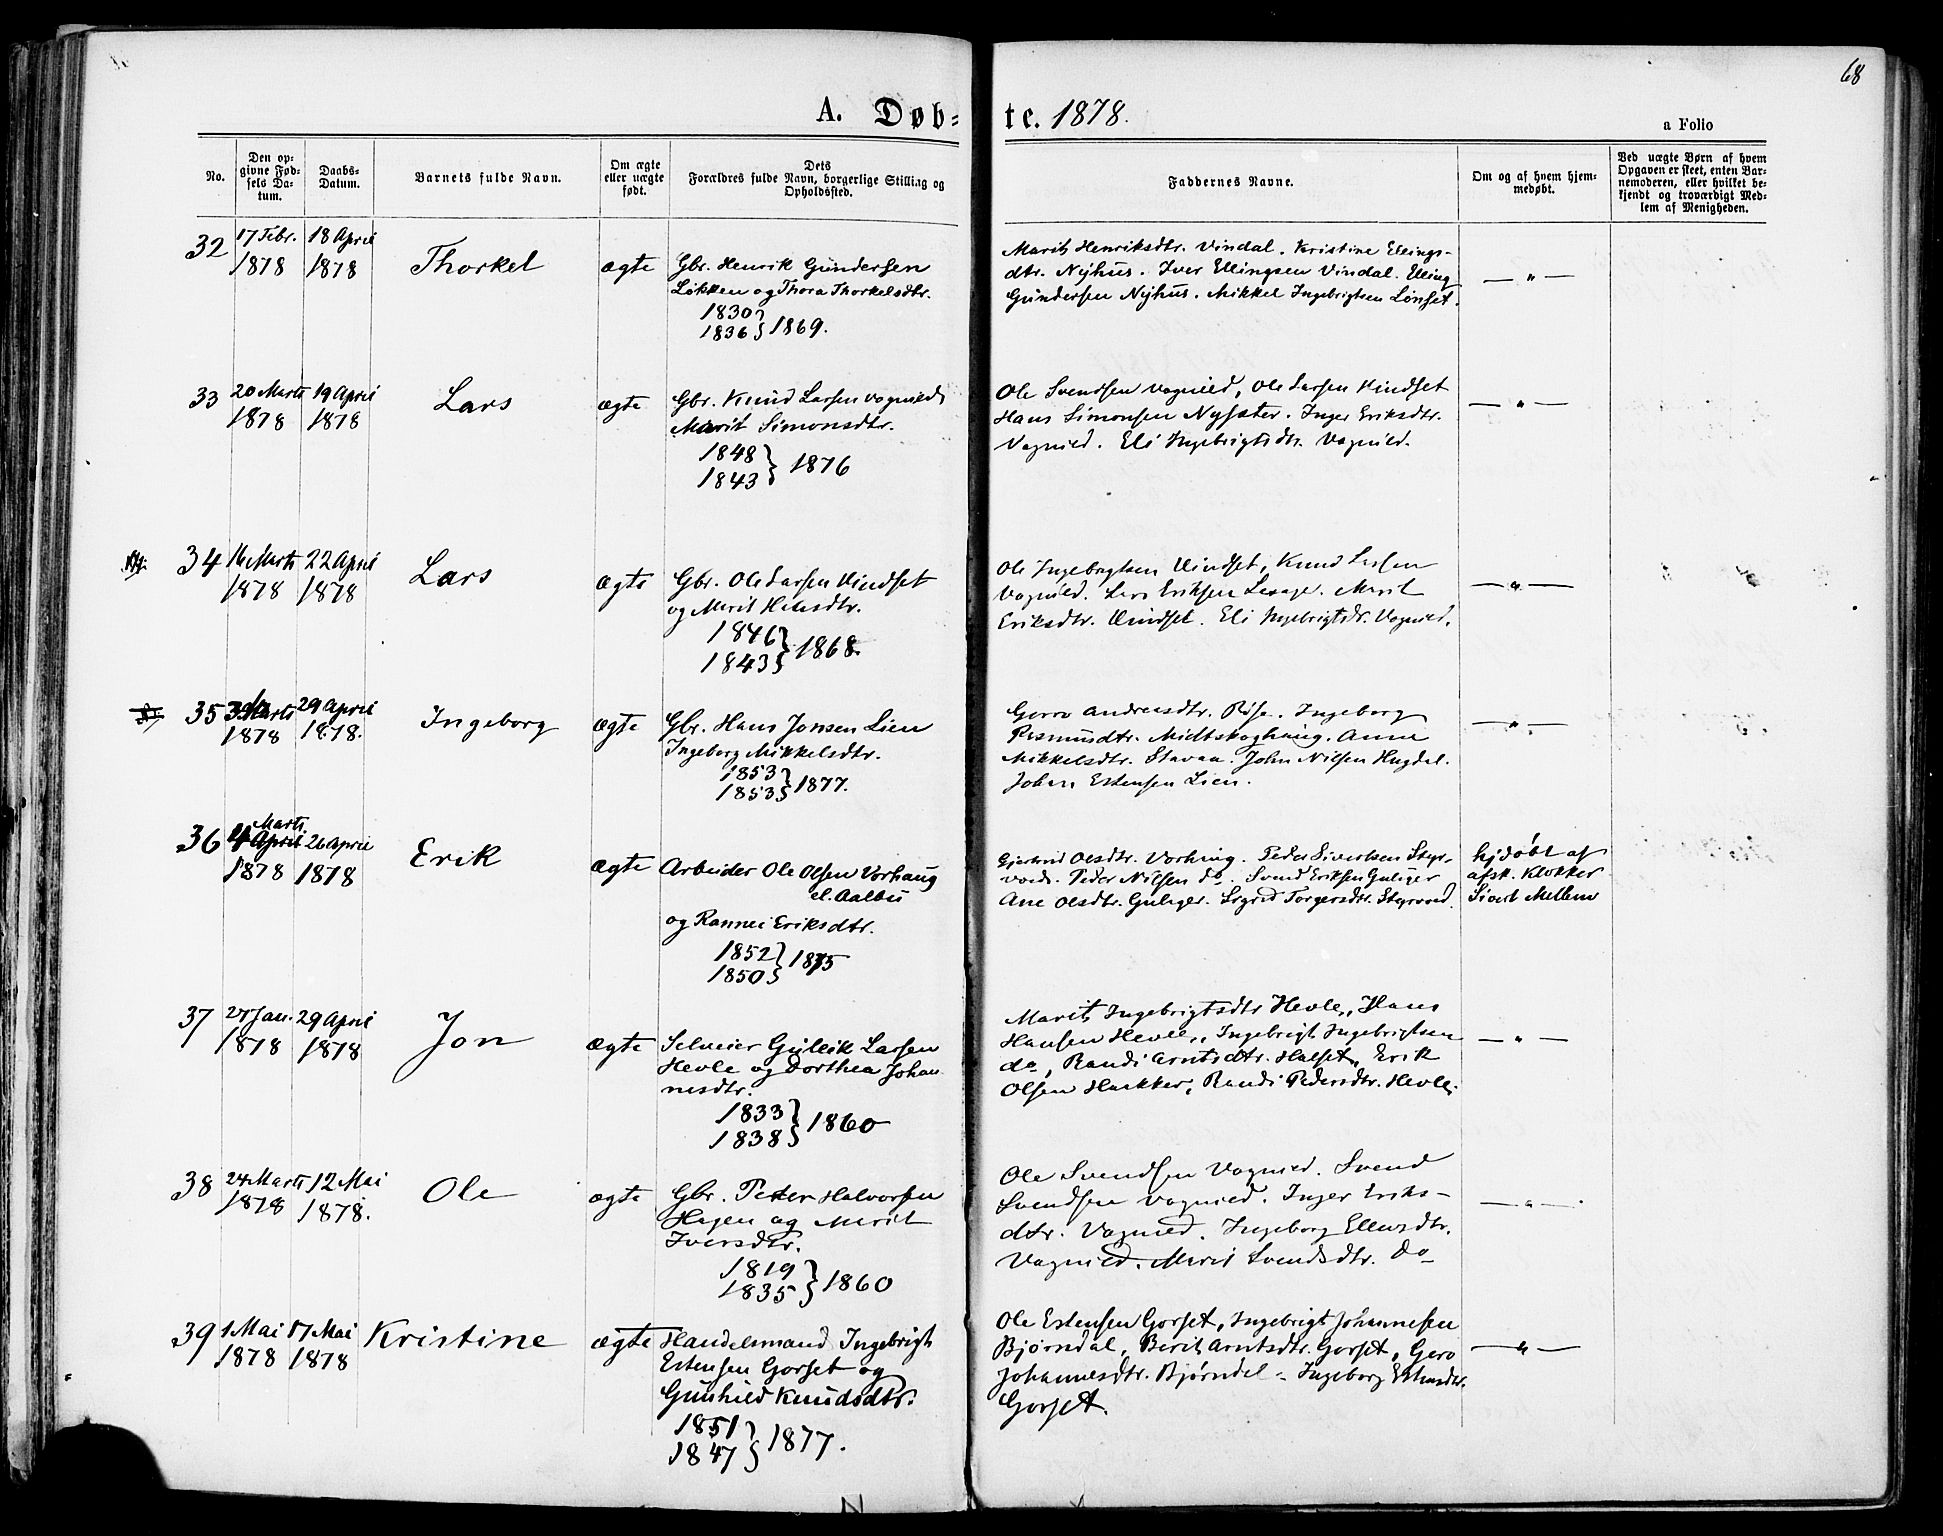 68
A. Døb-te. 1878.
a Folio
No.
Den op-
givne Fød-
sels Da-
tum.
Daabs-
Datum.
Barnets fulde Navn.
Om ægte
eller uægte
født.
Dets
Forældres fulde Navn, borgerlige Stilling og
Opholdssted.
Faddernes Navne.
Om og af hvem hjem-
medøbt.
Ved uægte Børn af hvem
Opgaven er skeet, enten Bar-
nemoderen, eller hvilket be-
kjendt og troværdigt Med-
lem af Menigheden.
32
17 Febr.
1878
18 April
1878
Thorkel
ægte
Gbr. Henrik Gundersen
Løkken og Thora Thorkelsdtr.
1830
1836 } 1869.
Marit Henriksdtr. Vindal. Kristine Ellings-
dtr. Nyhus. Iver Ellingsen Vindal. Elling
Gundersen Nyhus. Mikkel Ingebrigtsen Lønset.
— " —
33
20 Marts
1878
19 April
1878
Lars
ægte
Gbr. Knud Larsen Vognild
Marit Simonsdtr.
1848
1843 } 1876
Ole Svendsen Vognild, Ole Larsen Vindset
Hans Simonsen Nysæter. Inger Eriksdtr.
Vognild. Eli Ingebrigtsdtr. Vognild.
— " —
34
16 Marts
1878
22 April
1878
Lars
ægte
Gbr. Ole Larsen Vindset
og Marit
1846
1843 } 1868.
Ole Ingebrigtsen Vindset, Knud Larsen
Vognild. Lars Eriksen Marit
Eriksdtr. Vindset. Eli Ingebrigtsdtr. Vognild.
— " —
35
Marts
1878
29 April
1878.
Ingeborg
ægte
Gbr. Hans Jonsen Lien
Ingeborg Mikkelsdtr.
1853
1853 } 1877.
Gero Andreasdtr. Rise. Ingeborg
Rasmusdtr. Midtskoghaug. Anne
Mikkelsdtr. Stavaa. John Nilsen Hugdal.
Johan Estensen Lien.
— " —
36
Marts
April
1878
26 April
1878
Erik
ægte
Arbeider Ole Olsen Vorhaug
el. Aalbu
og Rannei Eriksdtr.
1852
1850 } 1875
Gjertrud Olsdtr. Vorhaug. Peder Sivertsen Styr-
vold. Peder Nilsen do. Svend Eriksen Guliger
Ane Olsdtr. Guliger. Sigrid Torgersdtr. Styrvold.
hjdøbt af
afsk. Klokker
Sivert Mellem
37
27 Jan.
1878
29 April
1878
Jon
ægte
Selveier Gullik Larsen
Hevle og Dorthea Johan-
nesdtr.
1833
1838 } 1860
Marit Ingebrigtsdtr Hevle, Hans
Hansen Hevle, Ingebrigt Ingebrigtsen
do, Randi Arntsdtr. Halset, Erik
Olsen Hækker, Randi Pedersdtr. Hevle.
— " —
38
24 Marts
1878
12 Mai
1878.
Ole
ægte
Gbr. Peter Halvorsen
Hagen og Marit
Iversdtr.
1819
1835 } 1860
Ole Svendsen Vognild. Svend
Svendsen Vognild. Inger Eriks-
dtr. Vognild. Ingeborg Ellensdtr.
Vognild. Marit Svendsdtr. do
— " —
39
1 Mai
1878
17 Mai
1878
Kristine
ægte
Handelsmand Ingebrigt
Estensen Gorset og
Gunhild Knudsdtr.
1851
1847 } 1877.
Ole Estensen Gorset, Ingebrigt Johannesen
Bjørndal, Berit Arntsdtr. Gorset, Gero
Johannesdtr. Bjørndal - Ingeborg Estensdtr.
Gorset.
— " —